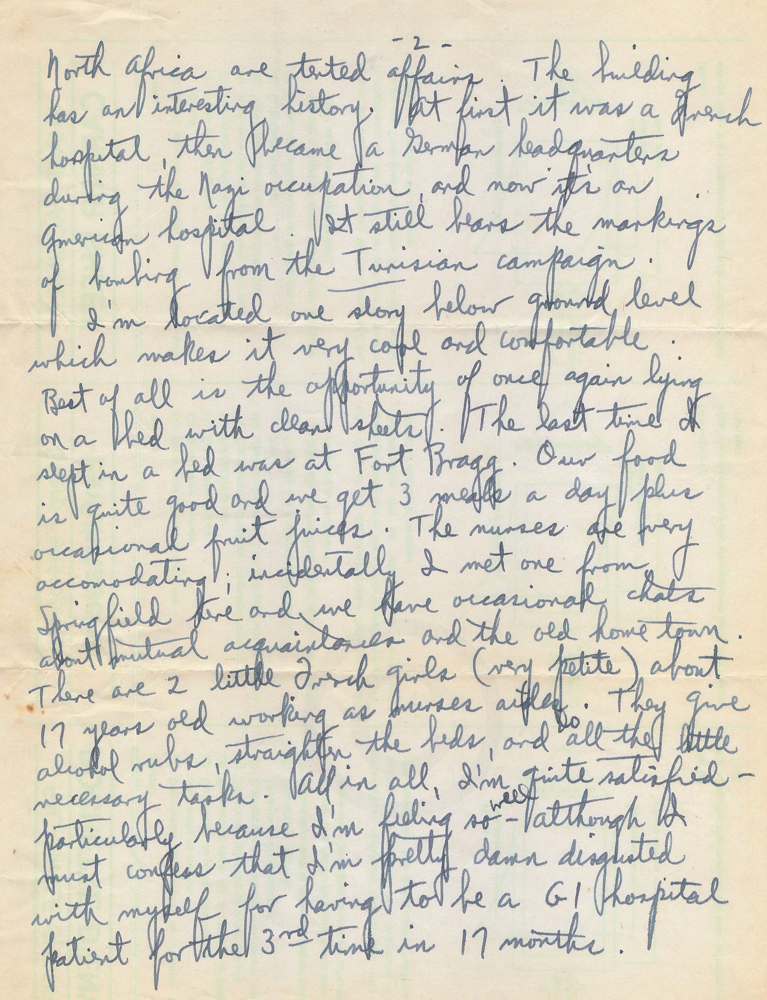 - 2 -
North Africa are tented affairs. The building
has an interesting history. At first it was a French
hospital, then became a German headquarters
during the Nazi occupation, and now it's an
American hospital. It still bears the markings
of bombing from the Tunisian campaign.
I'm located one story below ground level
which makes it very cool and comfortable.
Best of all is the opportunity of once again lying
on a bed with clean sheets. The last time I
slept in a bed was at Fort Bragg. Our food
is quite good and we get 3 meals a day plus
occasional fruit juices. The nurses are very
accomodating; incidentally I met one from
Springfield here and we have occasional chats
about mutual acquaintances and the old home town.
There are 2 little French girls (very petite) about
17 years old working as nurses aides. They give
alcohol rubs, straighten the beds, and do all the little
necessary tasks. All in all, I'm quite satisfied -
particularly because I'm feeling so well - although I
must confess that I'm pretty damn disgusted
with myself for having to be a GI hospital
patient for the 3rd time in 17 months.